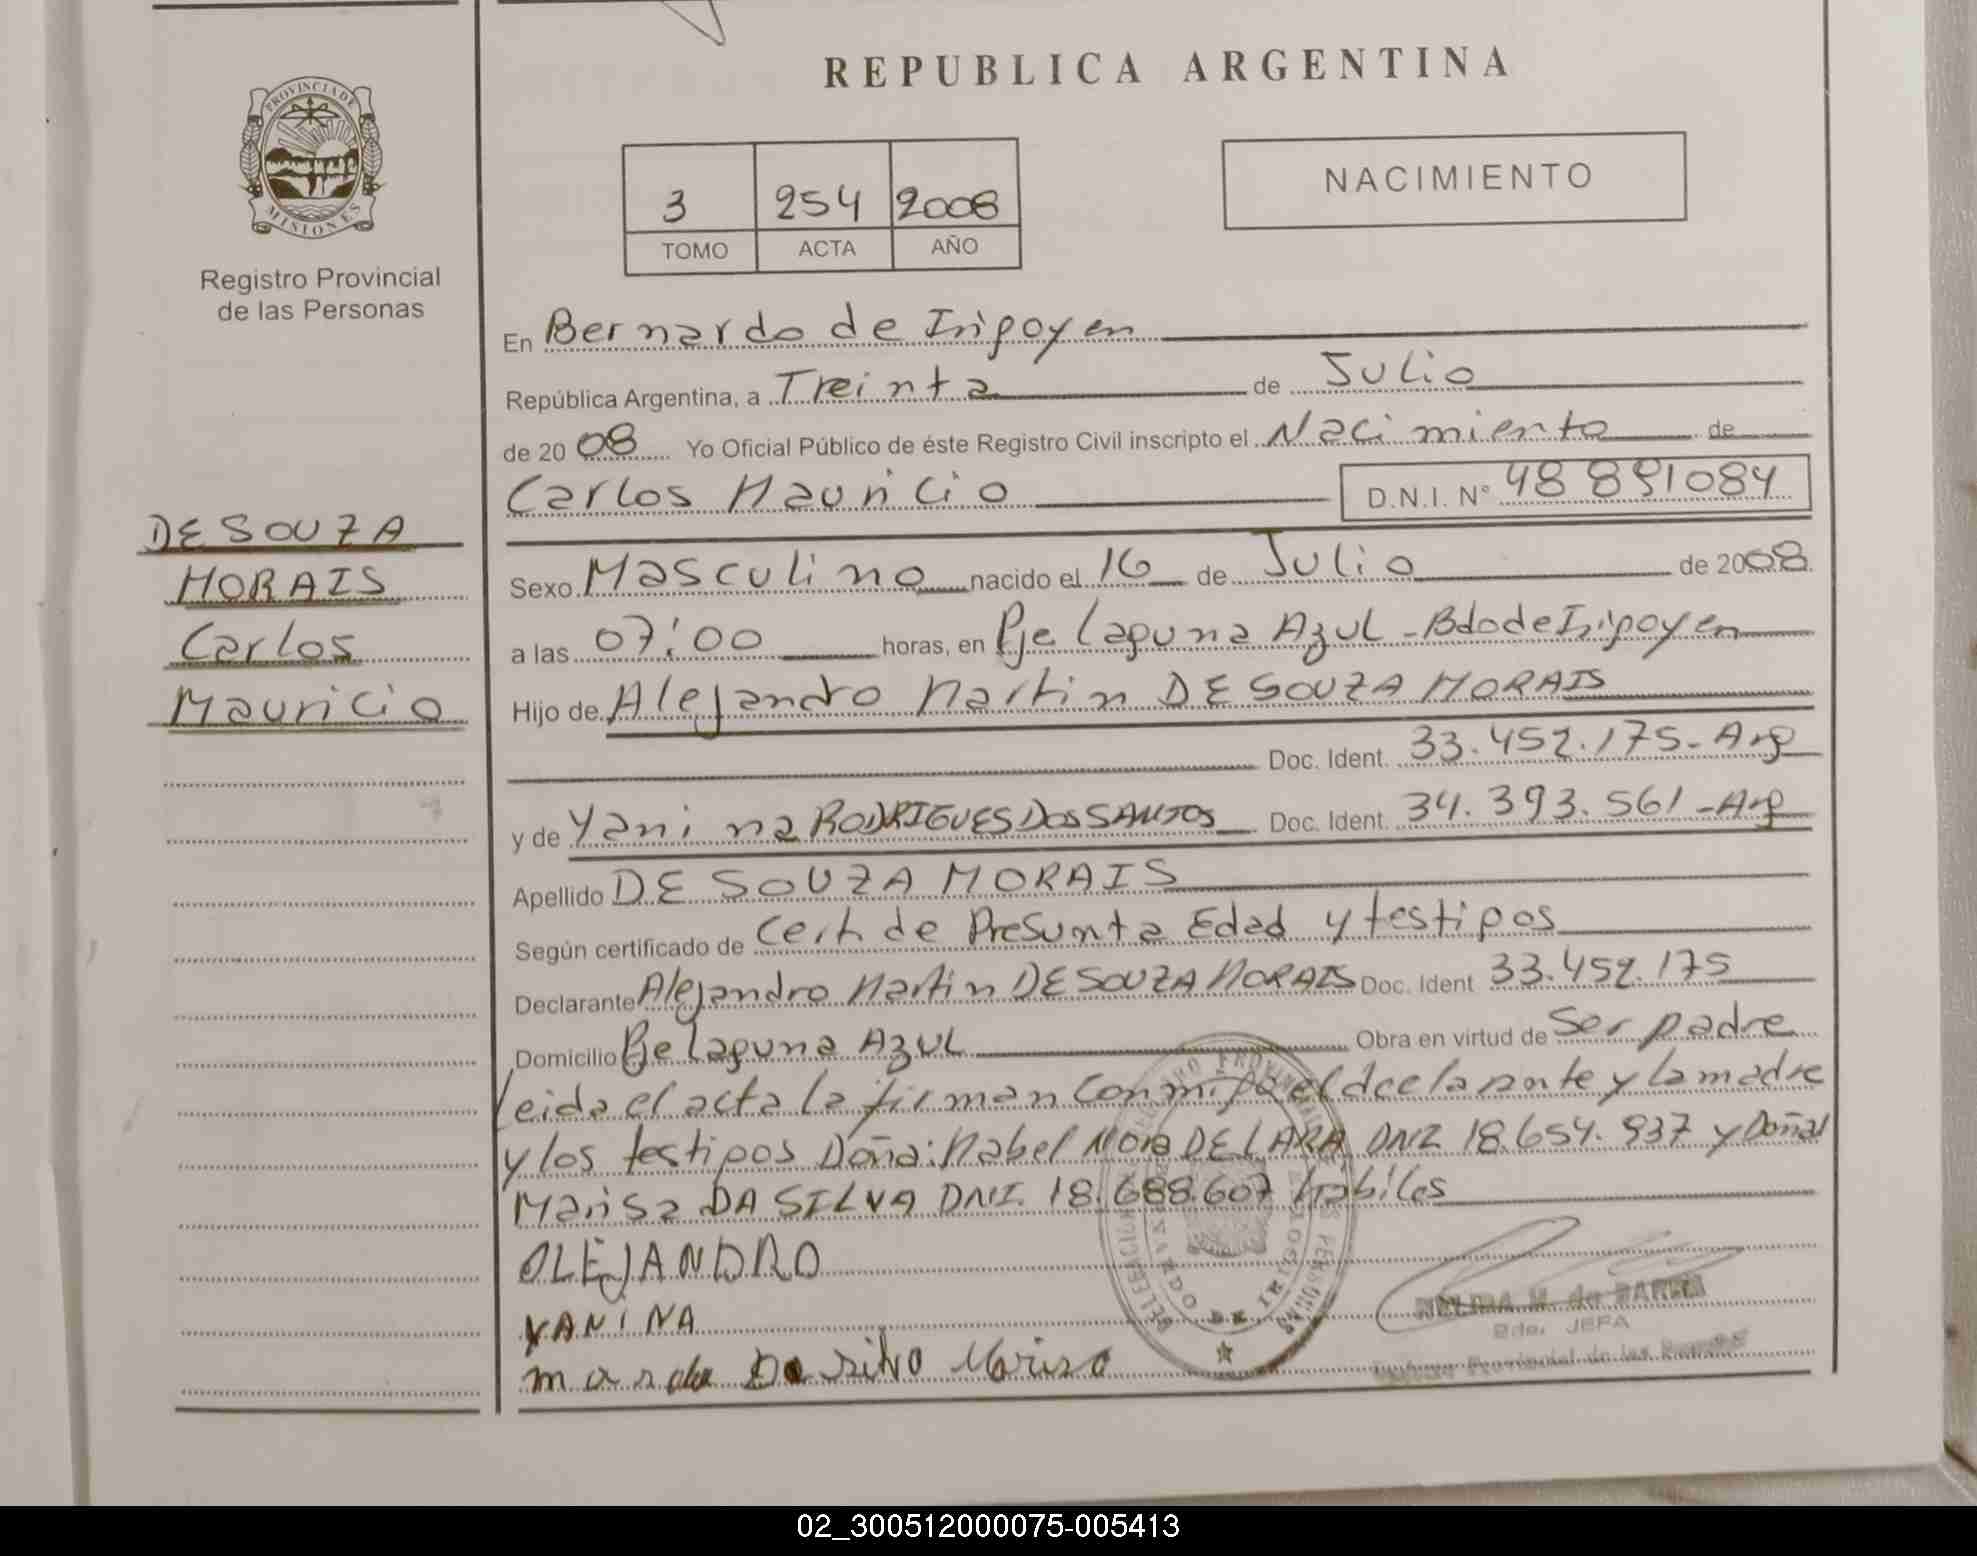 REPUBLICA ARGENTINA
PROVINCIA DE
MISIONES
Registro Provincial
de las Personas
3 254 2008
TOMO ACTA AÑO
NACIMIENTO
En Bernardo de Irigoyen
República Argentina, a Treinta de Julio
de 2008 Yo Oficial Público de éste Registro Civil inscripto el Nacimiento de
Carlos Mauricio D.N.I. N° 48 891084
DE SOUZA
MORAIS
Carlos
Mauricio
Sexo Masculino nacido el 16 de Julio de 2008
a las 07:00 horas, en Pje Laguna Azul - Bdo de Irigoyen
Hijo de Alejandro Martin DE SOUZA MORAIS
Doc. Ident. 33.452.175 - Arg
y de Yanina RODRIGUES DOS SANTOS Doc. Ident. 34.393.561 - Arg
Apellido DE SOUZA MORAIS
Según certificado de Cert. de Presunta Edad y testigos
Declarante Alejandro Martin DE SOUZA MORAIS Doc. Ident 33.452.175
Domicilio Pje Laguna Azul Obra en virtud de Ser padre
leida el acta la firman conmigo el declarante y la madre
y los testigos Doña: Mabel Nora DE LARA DNI 18.654.937 y Doña
Marisa DA SILVA DNI. 18.688.607 habiles
OLEJANDRO
YANINA
Da silva Marisa
Bdo. JEFA
Provincial de las
02_300512000075-005413